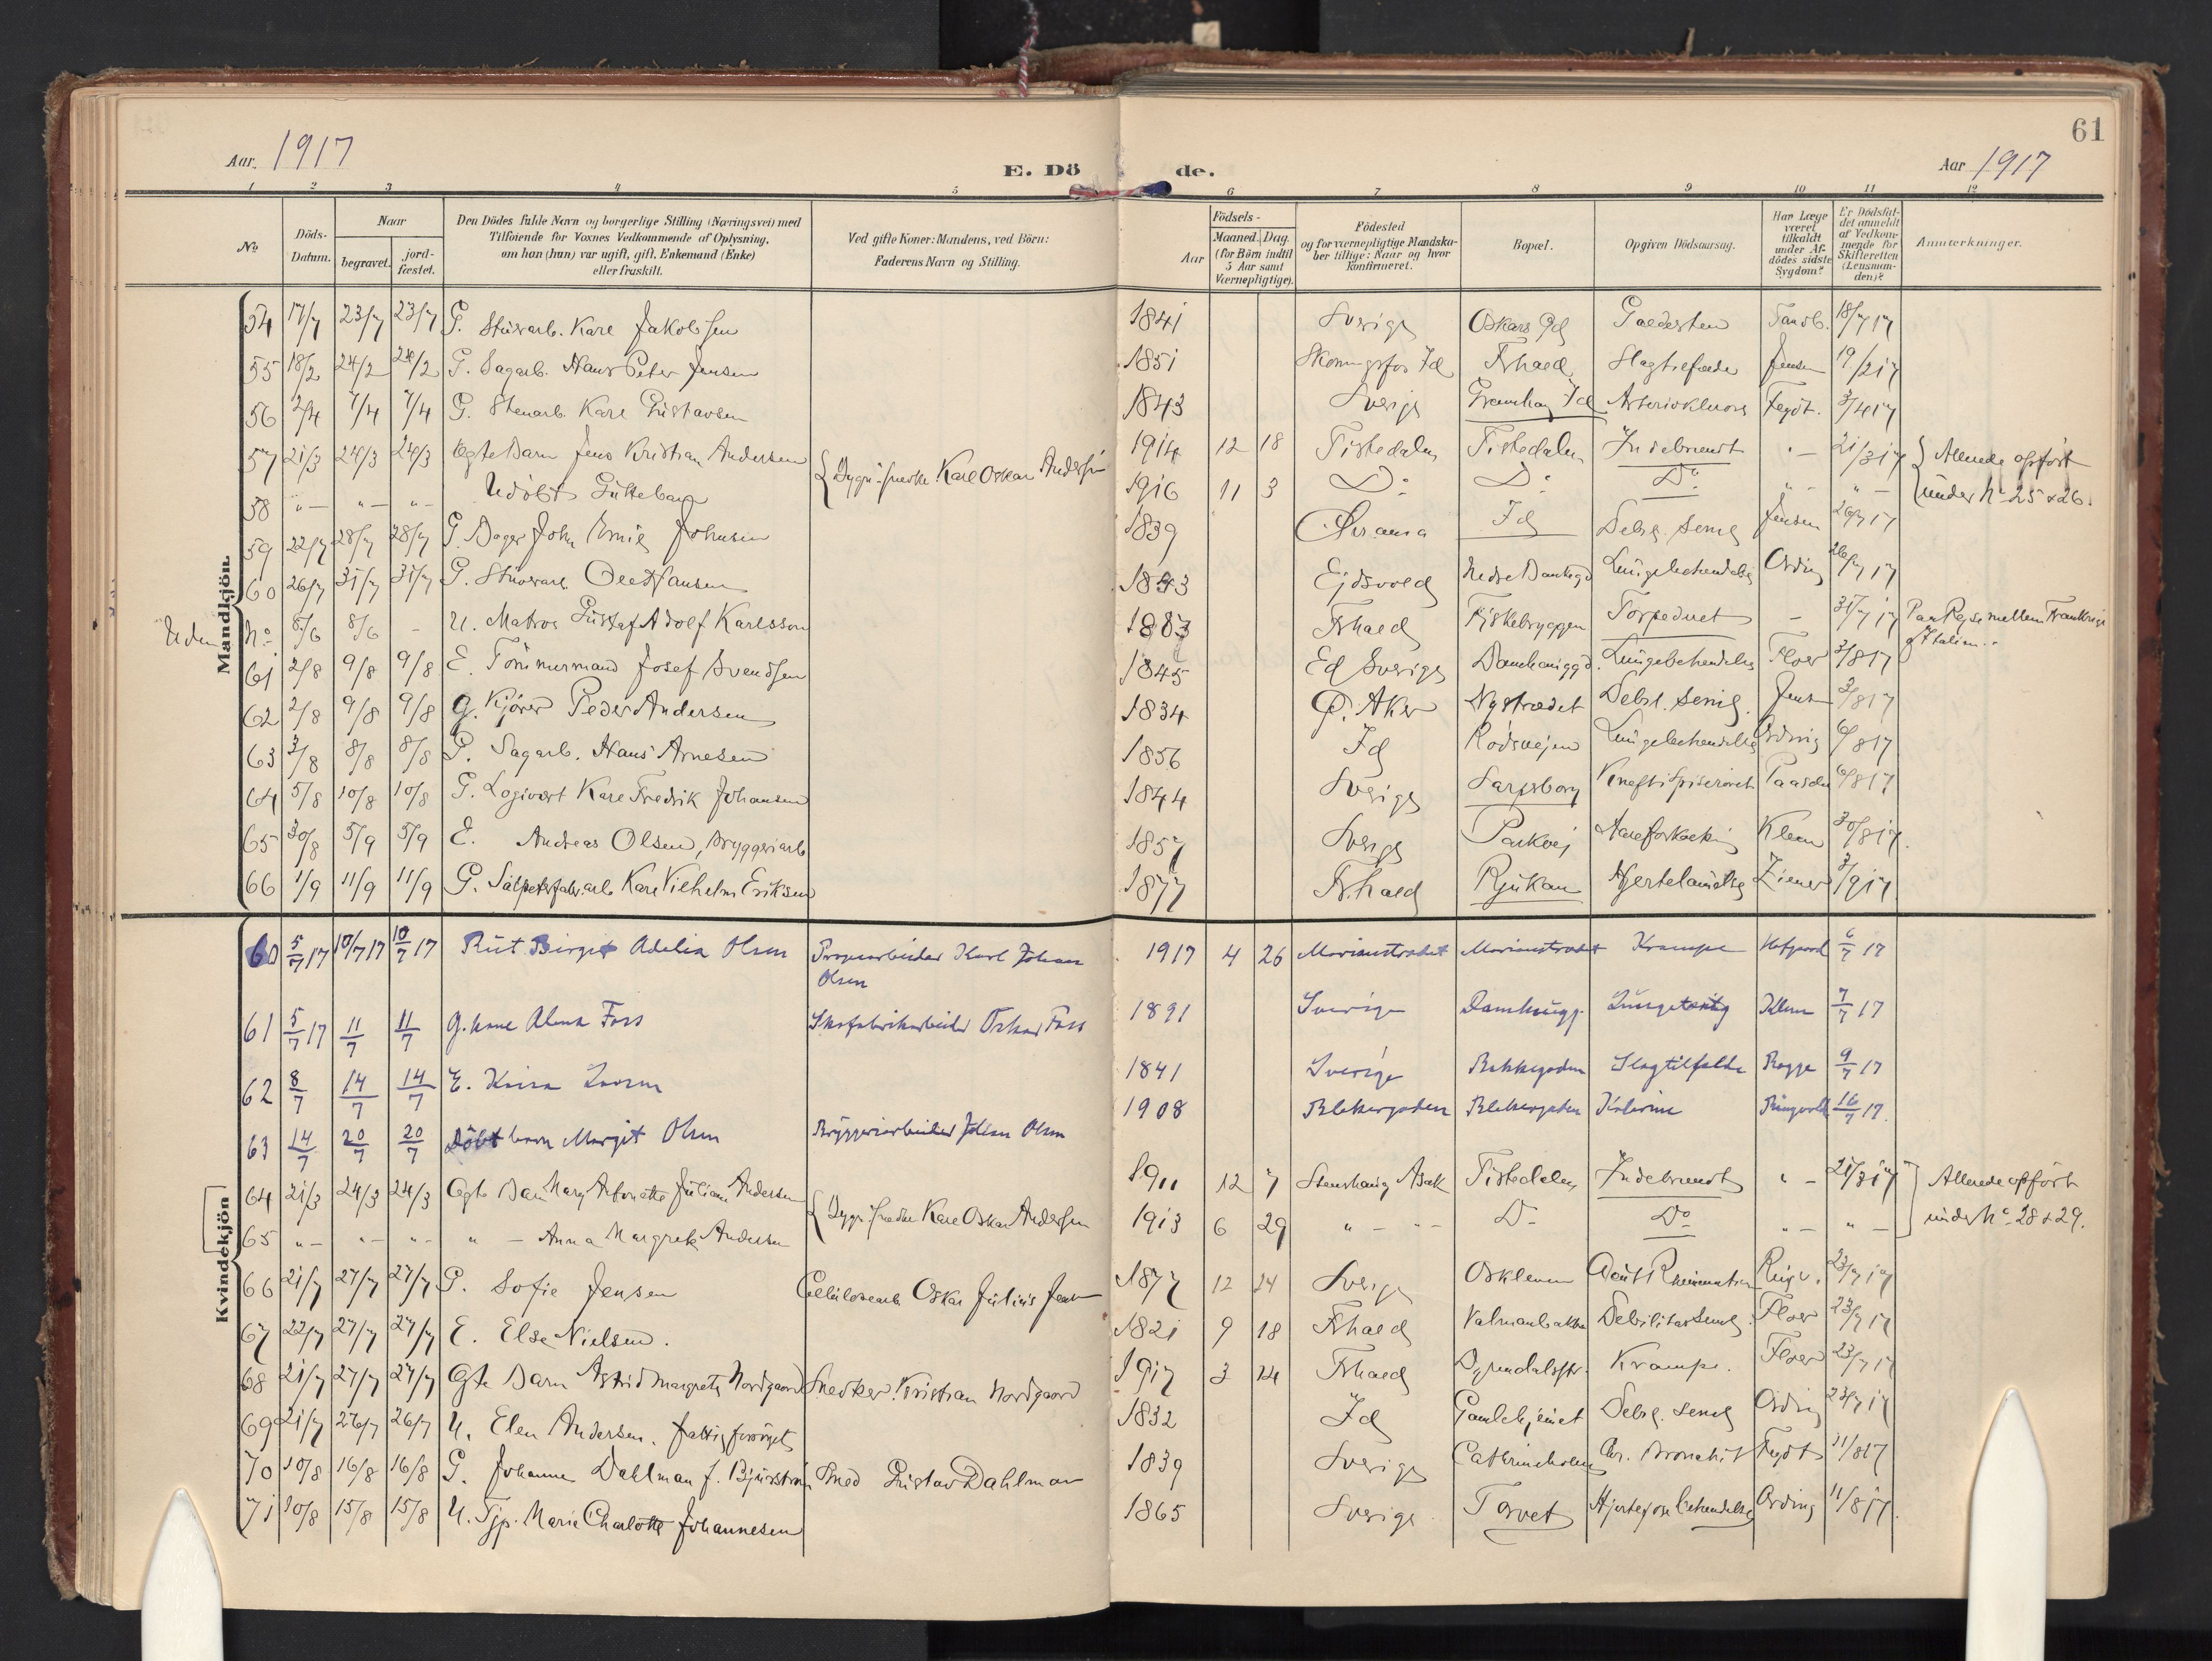 61
Aar. 1917
E. Döde.
Aar 1917
1 2 3 4 5 6 7 8 9 10 11 12
No
Döds-Datum.
Naar
begravet. jord-fæstet.
Den Dödes fulde Navn og borgerlige Stilling (Næringsvei) med
Tilföiende for Voxnes Vedkommende af Oplysning,
om han (hun) var ugift, gift, Enkemand (Enke)
eller fraskilt.
Ved gifte Koner: Mandens, ved Börn:
Faderens Navn og Stilling.
Aar
Födsels-
Maaned. Dag.
(for Börn indtil
5 Aar samt
Værnepligtige).
Födested
og for værnepligtige Mandska-
ber tillige: Naar og hvor
konfirmeret.
Bopæl.
Opgiven Dödsaarsag.
Har Læge
været
tilkaldt
under Af-
dödes sidste
Sygdom?
Er Dödsfal-
det anmeldt
af Vedkom-
mende for
Skifteretten
(Lensman-
den)?
Anmærkninger.
Mandkjön.
54 17/7 23/7 23/7 G. Stuvarb. Karl Jakobsen 1841 Sverige Oskars Gd Galdesten 18/7 17
55 18/2 24/2 24/2 G. Sagarb. Hans Peter Jensen 1851 Skonningsfos Id Frhald Slagtilfælde Jensen 19/2 17
56 2/4 7/4 7/4 G. Stenarb. Karl Gustavsen 1843 Sverige Id 3/4 17
57 21/3 24/3 24/3 Ægte Barn Jens Kristian Andersen Karl Oskar Andersen 1914 12 18 Tistedalen Tistedalen Indebrændt " — 21/3 17 Allerede opfört
58 " — " — " — Udöbt Guttebarn 1916 11 3 Do Do Do " — " — under No 25 & 26.
59 22/7 28/7 28/7 G. Bager John Emil Johnsen 1839 Id Debil. senil Jensen 17
60 26/7 31/7 31/7 G. Stuvarb. Ole Hansen Eidsvold Nedre Bankegd Lungebetændelse Ording 26/7 17
Uden No 8/6 8/6 – U. Matros Gustaf Adolf Karlsson 1883 Frhald Fiskebryggen Torpedoet – 31/7 17 Paa Rejse mellem Frankrige
og Italien.
61 2/8 9/8 9/8 E. Tömmermand Josef Svendsen 1845 Ed Sverige Lungebetændelse Floer 3/8 17
62 2/8 9/8 9/8 G. Kjörer Peder Andersen 1834 Ö. Aker Nystrædet Debil. senil Jens 3/8 17
63 3/8 8/8 8/8 G. Sagarb. Hans Arnesen 1856 Id Rödsvejen Lungebetændelse Ording 6/8 17
64 5/8 10/8 10/8 G. Logivert Karl Fredrik Johansen 1844 Sverige Sarpsborg Kræft i Spiserøret 6/8 17
65 30/8 5/9 5/9 E. Andreas Olsen, Bryggeriarb 1857 Sverige Parkvej Aareforkalkning Klem 30/8 17
66 1/9 11/9 11/9 G. Salpeterfabr.arb. Karl Vilhelm Eriksen 1877 Frhald Rjukan Hjertelammelse Ziener 3/9 17
Kvindekjön
60 5/7 17 10/7 17 10/7 17 Rut Birgit Adelia Olsen Karl Johan
Olsen 1917 4 26 Marianstrædet Marianstrædet Krampe Hofgaard 6/7 17
61 5/7 17 11/7 11/7 G. kone Foss Skofabrikarbeider Oskar Foss 1891 Sverige Damhaugg. Klem 7/7 17
62 8/7 14/7 14/7 E. 1841 Sverige Bakkegaden Slagtilfælde Rogge 9/7 17
63 14/7 20/7 20/7 Döbt barn Margit Olsen Bryggeriarbeider Johan Olsen 1908 Blekergaden Blekergaden Kolerine 16/7 17.
64 21/3 24/3 24/3 Ægte Barn Mary Antonette Juliane Andersen Karl Oskar Andersen 1911 12 7 Stenshaug Asak Tistedalen Indebrændt " — 21/3 17 Allerede opfört
65 " — " — " — " — Anna Margrete Andersen 1913 6 29 " — " — Do Do " — " — under No 28 & 29.
66 21/7 27/7 27/7 G. Sofie Jensen Cellulosearb. Oskar Julius Jensen 1877 12 24 Sverige Oskleven 23/7 17
67 22/7 27/7 27/7 E. Else Nielsen. 1821 9 18 Frhald Debilitas senil. Floer 23/7 17
68 21/7 27/7 27/7 Ægte Barn Astrid Margrete Nordgaard Snedker Kristian Nordgaard 1917 3 14 Frhald Krampe. Floer 23/7 17
69 21/7 26/7 26/7 U. Elen Andersen. fattigforsörget 1832 Id Gamlehjemet Debil. senil Ording 23/7 17
70 10/8 16/8 16/8 G. Johanne Dahlman f. Bjurström Smed Gustav Dahlman 1839 Sverige Cathrineholm Chr. Bronchit 11/8 17
71 10/8 15/8 15/8 U. Tjp. Marie Charlotte Johannesen 1865 Sverige Torvet Ording 11/8 17.